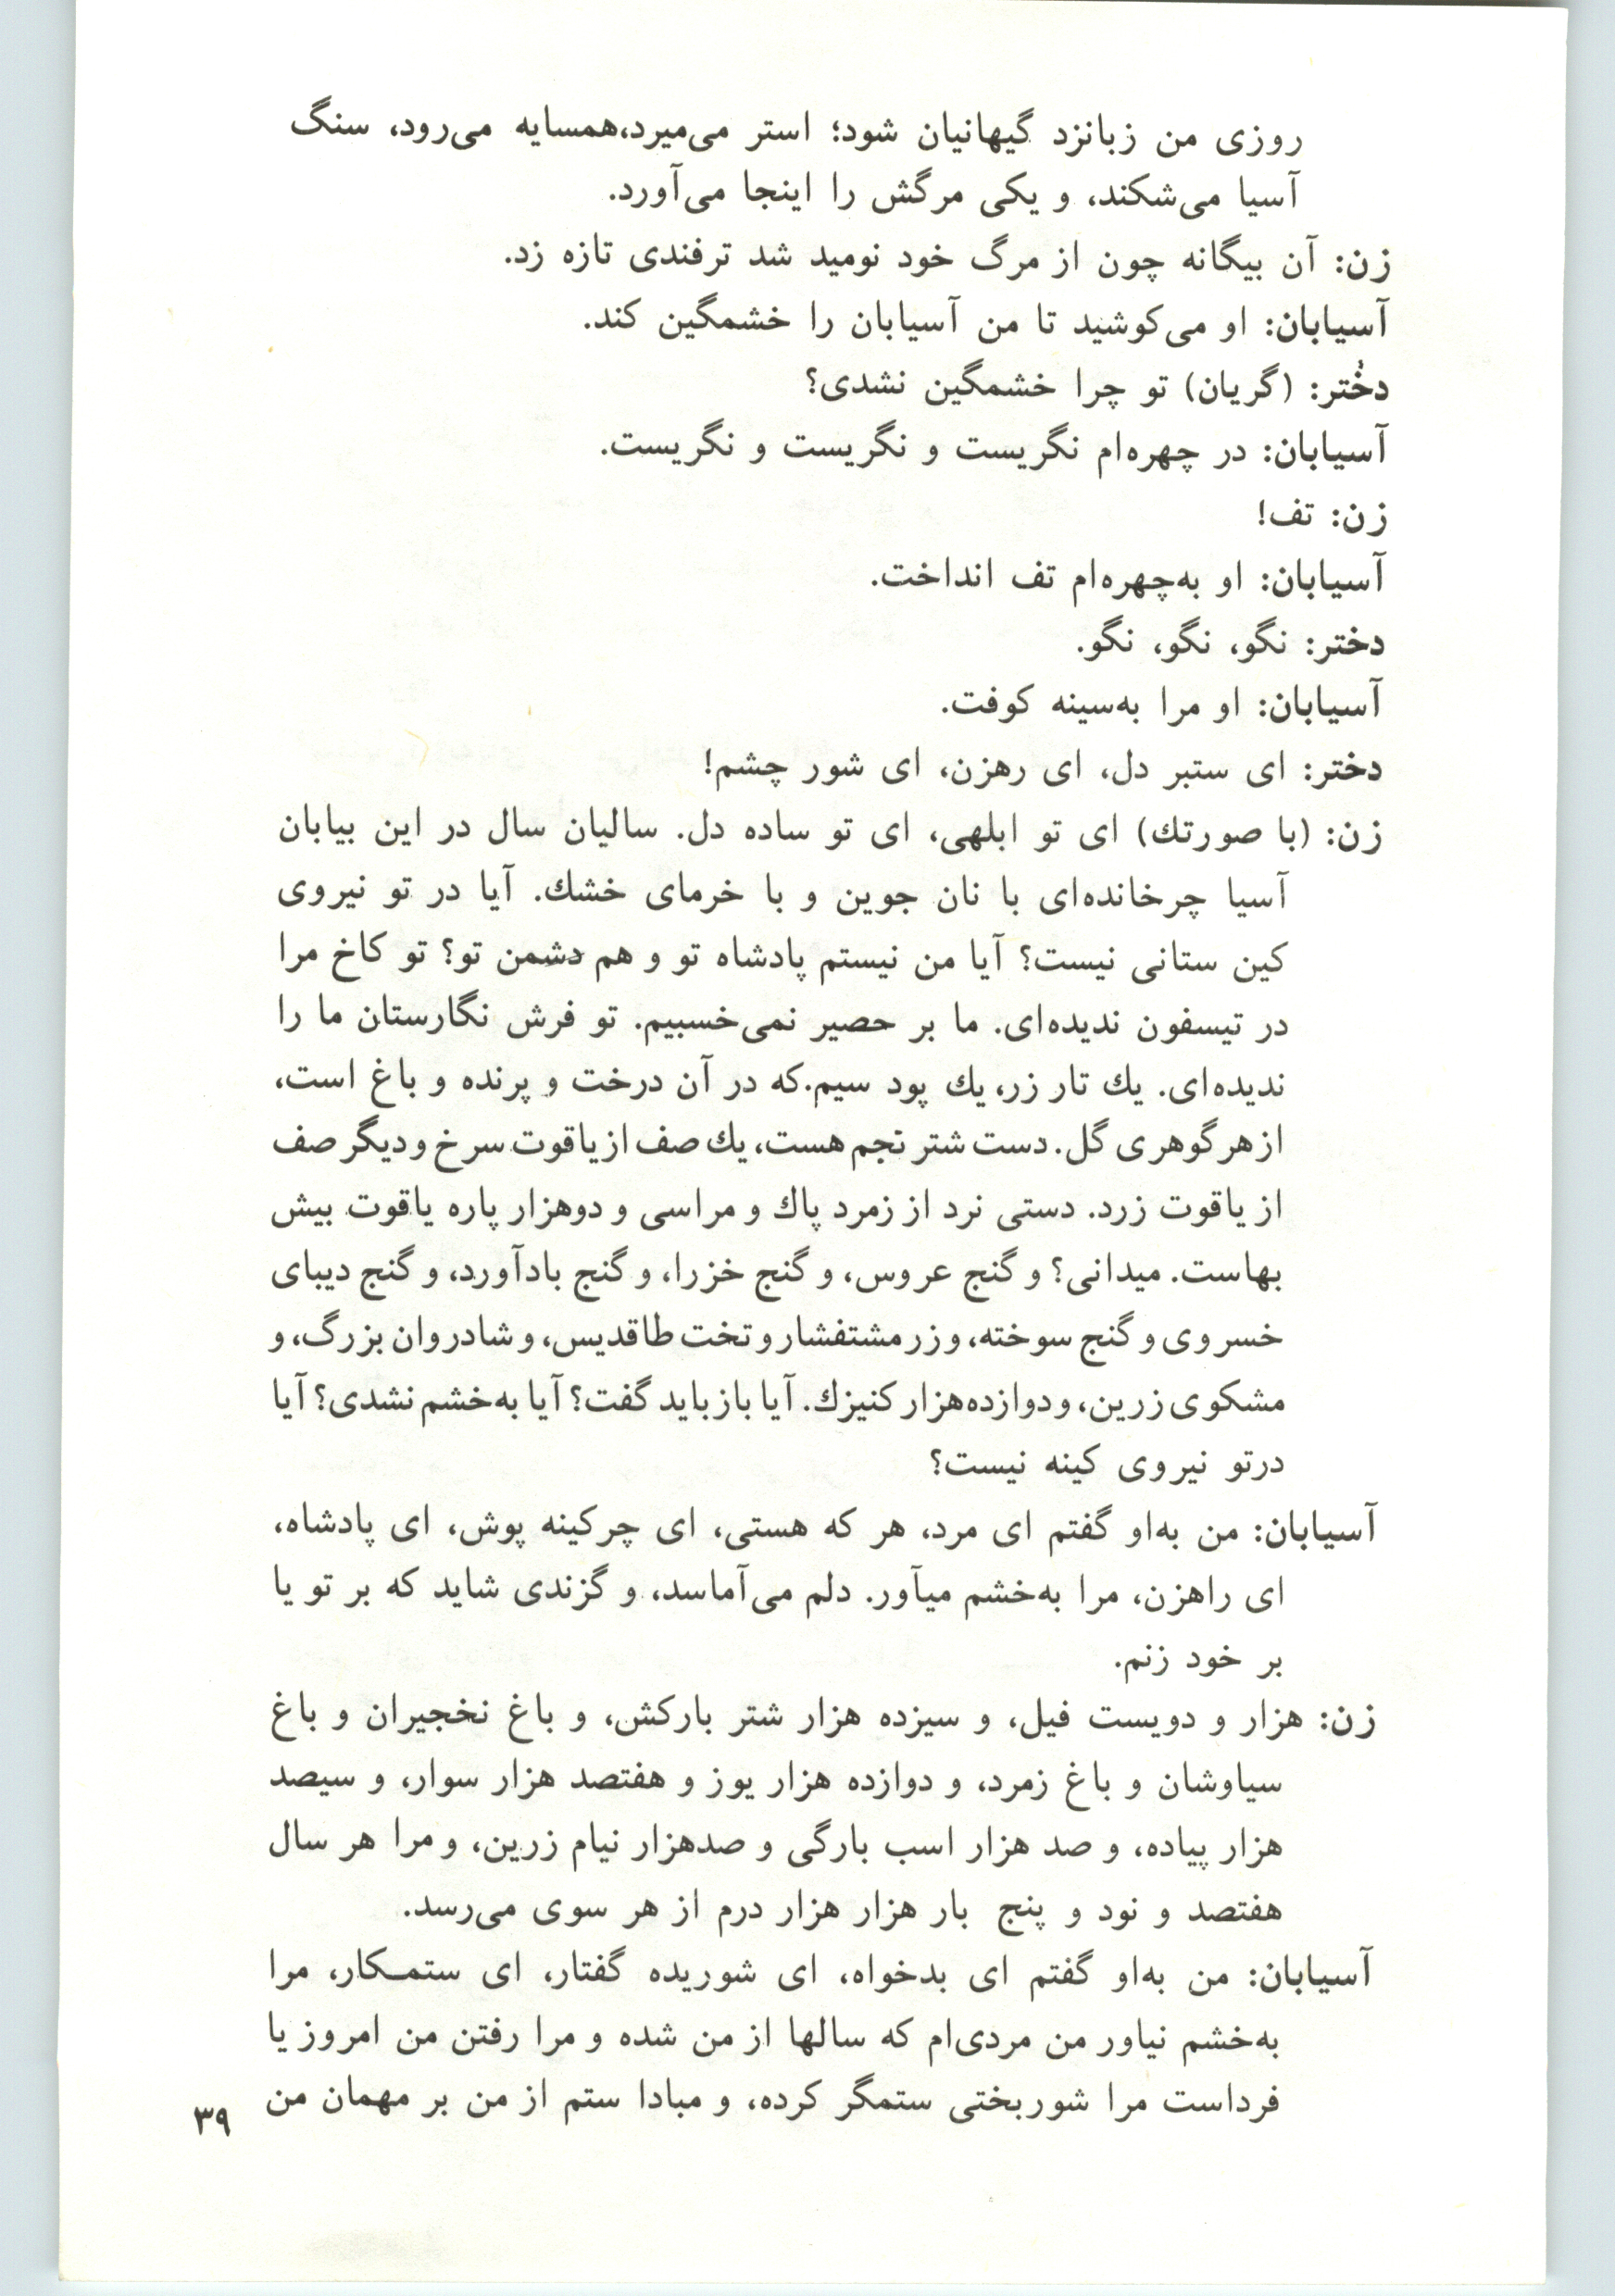 روزی من زبانزد گیهانیان شود؛ استر می‌میرد،همسایه می‌رود، سنگ
آسیا می‌شکند، و یکی مرگش را اینجا می‌آورد.
زن: آن بیگانه چون از مرگ خود نومید شد ترفندی تازه زد.
آسیابان: او می‌کوشید تا من آسیابان را خشمگین کند.
دختر: (گریان) تو چرا خشمگین نشدی؟
آسیابان: در چهره‌ام نگریست و نگریست و نگریست.
زن: تف!
آسیابان: او به‌چهره‌ام تف انداخت.
دختر: نگو، نگو، نگو.
آسیابان: او مرا به‌سینه کوفت.
دختر: ای ستبر دل، ای رهزن، ای شور چشم!
زن: (با صورتك) ای تو ابلهی، ای تو ساده دل. سالیان سال در این بیابان
آسیا چرخانده‌ای با نان جوین و با خرمای خشك. آیا در تو نیروی
کین ستانی نیست؟ آیا من نیستم پادشاه تو و هم دشمن تو؟ تو کاخ مرا
در تیسفون ندیده‌ای. ما بر حصیر نمی‌خسبیم. تو فرش نگارستان ما را
ندیده‌ای. یك تار زر، یك پود سیم.که در آن درخت و پرنده و باغ است،
از هر گوهری گل. دست شتر نجم هست، یك صف از یاقوت سرخ و دیگر صف
از یاقوت زرد. دستی نرد از زمرد پاك و مراسی و دوهزار پاره یاقوت بیش
بهاست. میدانی؟ و گنج عروس، و گنج خزرا، و گنج بادآورد، و گنج دیبای
خسروی و گنج سوخته، و زر مشتفشار و تخت طاقدیس، و شادروان بزرگ، و
مشکوی زرین، و دوازده‌هزار کنیزك. آیا باز باید گفت؟ آیا به‌خشم نشدی؟ آیا
درتو نیروی کینه نیست؟
آسیابان: من به‌او گفتم ای مرد، هر که هستی، ای چرکینه پوش، ای پادشاه،
ای راهزن، مرا به‌خشم میآور. دلم می‌آماسد، و گزندی شاید که بر تو یا
بر خود زنم.
زن: هزار و دویست فیل، و سیزده هزار شتر بارکش، و باغ نخجیران و باغ
سیاوشان و باغ زمرد، و دوازده هزار یوز و هفتصد هزار سوار، و سیصد
هزار پیاده، و صد هزار اسب بارگی و صدهزار نیام زرین، و مرا هر سال
هفتصد و نود و پنج بار هزار هزار درم از هر سوی می‌رسد.
آسیابان: من به‌او گفتم ای بدخواه، ای شوریده گفتار، ای ستمـکار، مرا
به‌خشم نیاور من مردی‌ام که سالها از من شده و مرا رفتن من امروز یا
فرداست مرا شوربختی ستمگر کرده، و مبادا ستم از من بر مهمان من
۳۹